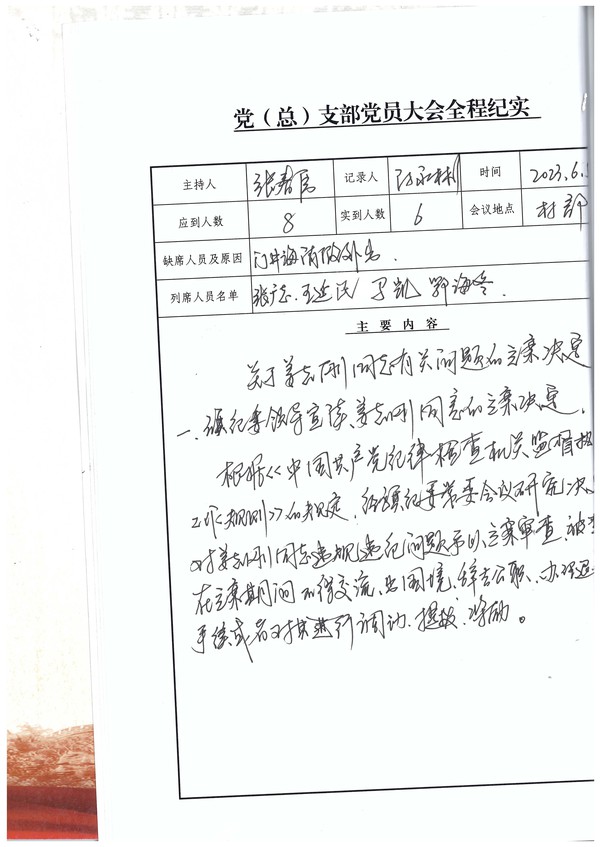 党（总）支部党员大会全程纪实
主持人 张 记录人 时间 2023.6.
应到人数 8 实到人数 6 会议地点 村部
缺席人员及原因 海清 外出.
列席人员名单 张 王 凯 海冬.
主要内容
关于姜志刚同志有关问题的立案决定
一.旗纪委领导宣读姜志刚同志的立案决定.
根据《中国共产党纪律检查机关监督执
工作规则》的规定.经旗纪委常委会议研究决
对姜志刚同志违规违纪问题予以立案审查.被
在立案期间不得交流.出国境.辞去公职.办理退
手续或者对其进行调动.提拔.奖励。